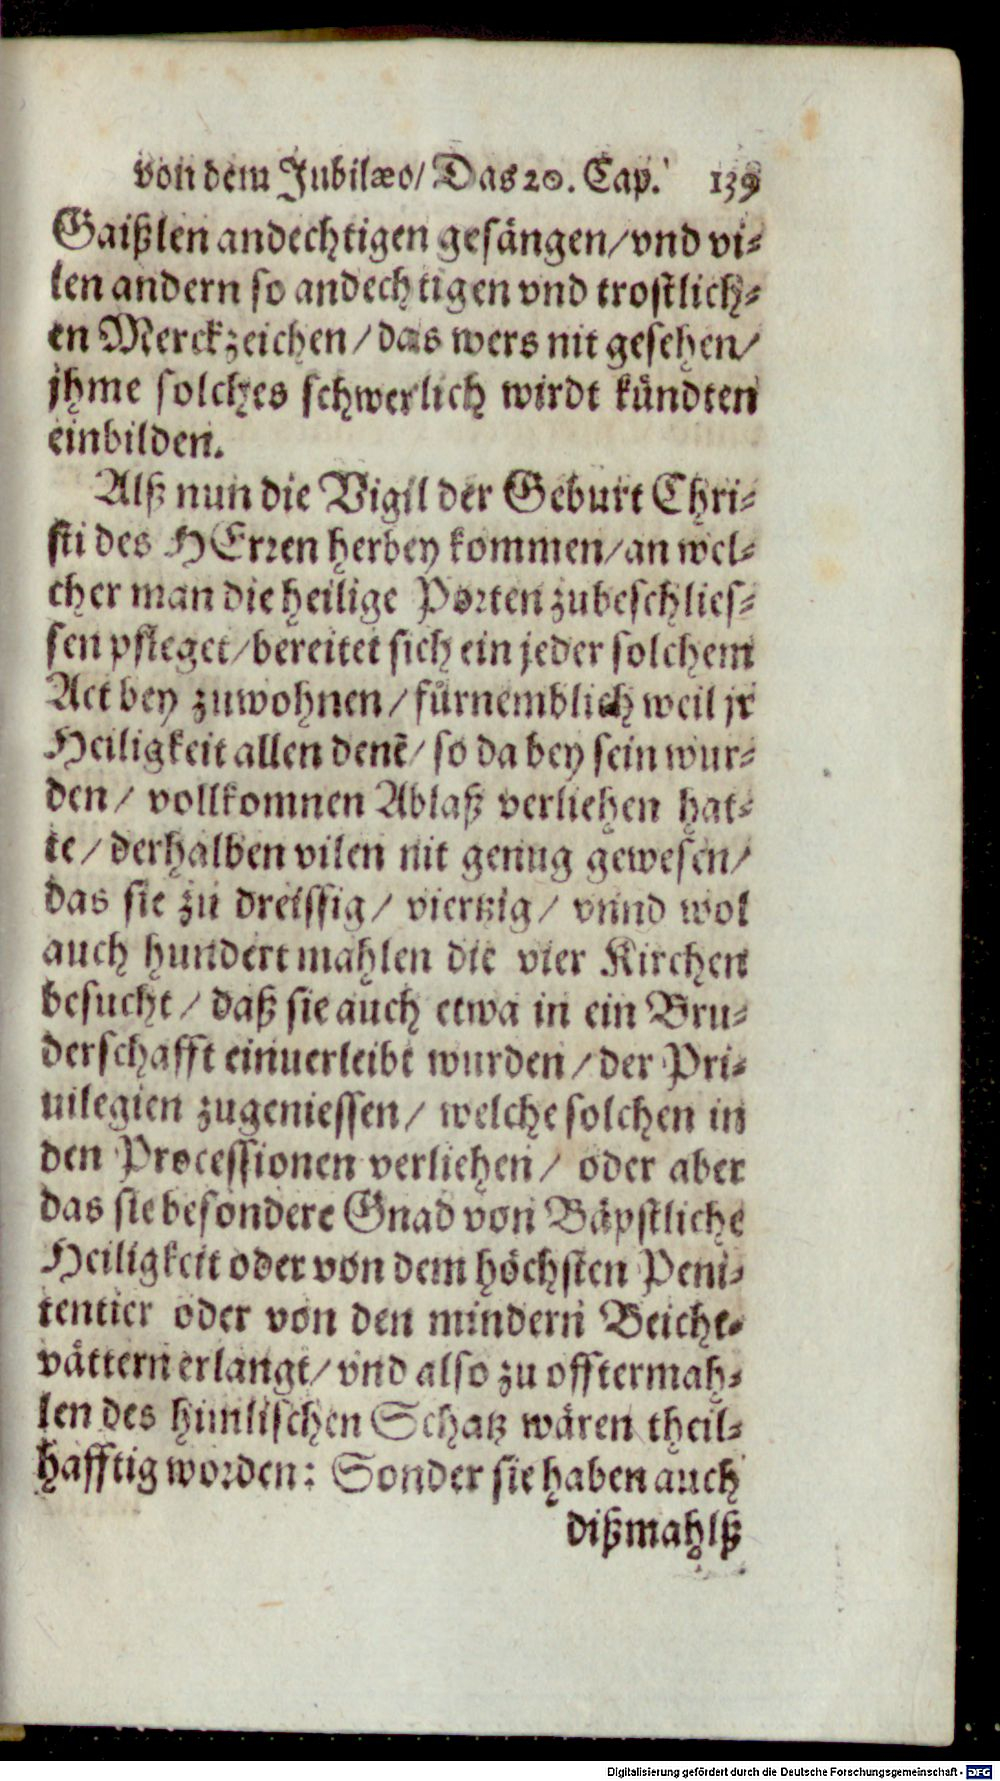 von dem Jubilæo/ Das 20. Cap. 139
Gaißlen andechtigen gesängen/ vnd vi-
len andern so andechtigen vnd trostlich-
en Merckzeichen/ das wers nit gesehen/
jhme solches schwerlich wirdt kündten
einbilden.
Alß nun die Vigil der Geburt Chri-
sti des HErren herbey kommen/ an wel-
cher man die heilige Porten zubeschlies-
sen pfleget/ bereitet sich ein jeder solchem
Act bey zuwohnen/ fürnemblich weil jr
Heiligkeit allen denẽ/ so da bey sein wur-
den/ vollkomnen Ablaß verliehen hat-
te/ derhalben vilen nit genug gewesen/
das sie zu dreissig/ viertzig/ vnnd wol
auch hundert mahlen die vier Kirchen
besucht/ daß sie auch etwa in ein Bru-
derschafft einuerleibt wurden/ der Pri-
uilegien zugeniessen/ welche solchen in
den Processionen verliehen/ oder aber
das sie besondere Gnad von Bäpstliche
Heiligkeit oder von dem höchsten Peni-
tentier oder von den mindern Beicht-
vättern erlangt/ vnd also zu offtermah-
len des himlischen Schatz wären theil-
hafftig worden: Sonder sie haben auch
dißmahlß
Digitalisierung gefördert durch die Deutsche Forschungsgemeinschaft - DFG